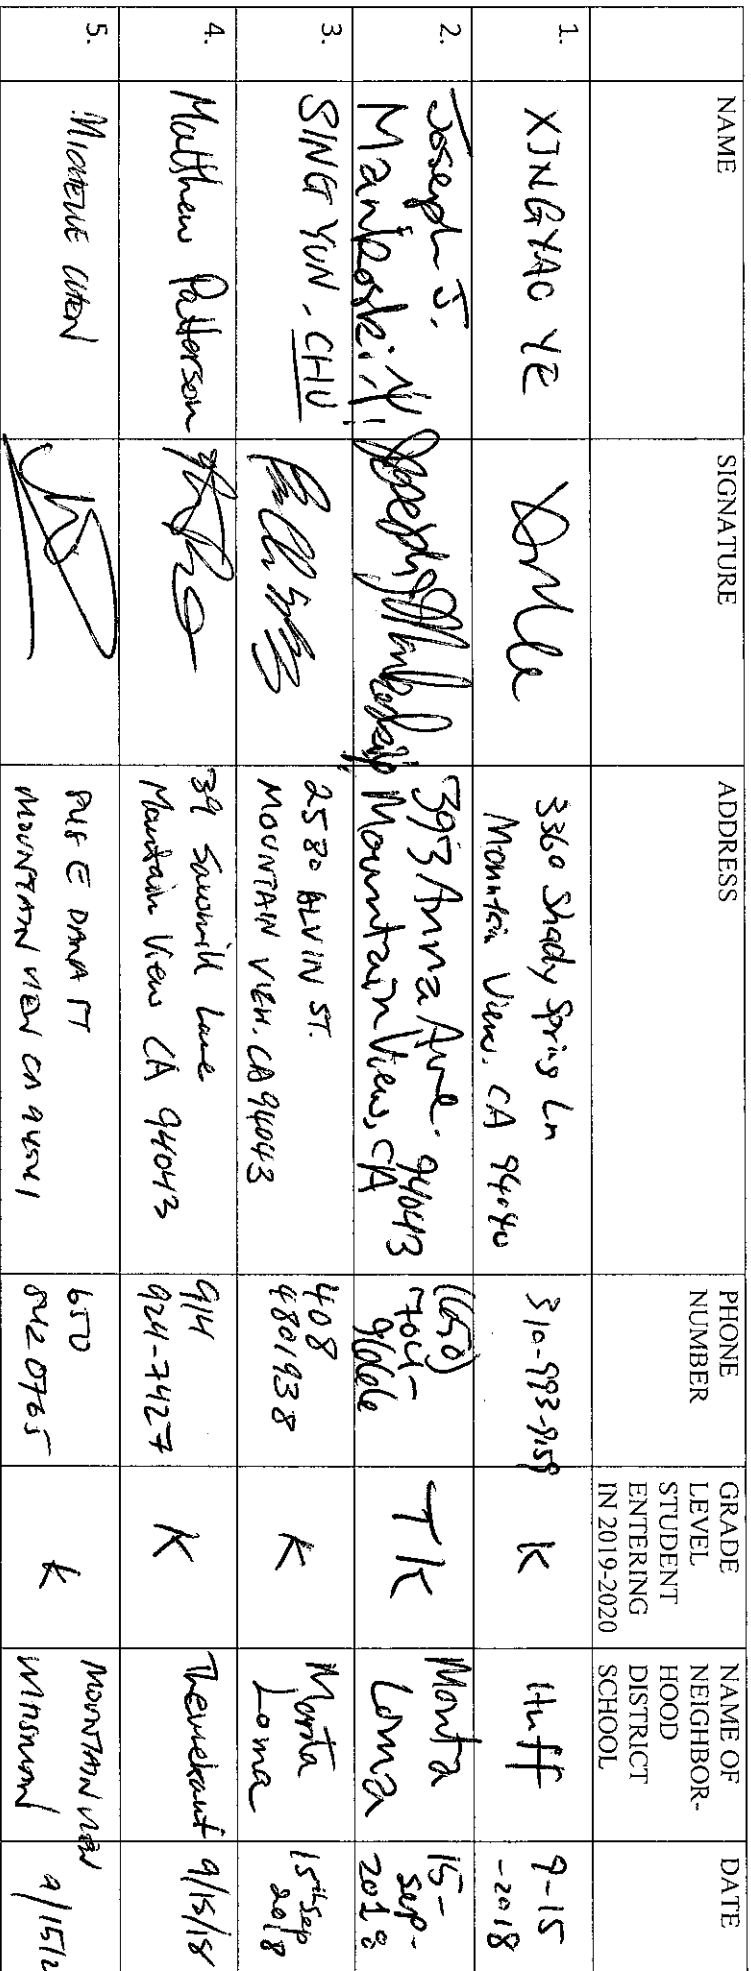 NAME
SIGNATURE
ADDRESS
PHONE
NUMBER
GRADE
LEVEL
STUDENT
ENTERING
IN 2019-2020
NAME OF
NEIGHBOR-
HOOD
DISTRICT
SCHOOL
DATE
1.
XINGYAO YE
3360 Shady Spring Ln
Mountain View, CA 94040
310-993-9159
K
Huff
9-15
-2018
2.
Joseph J.
Mankoski
393 Anna Ave. 94043
Mountain View, CA
(650)
704-
9666
TK
Monta
Loma
15-
Sep-
2018
3.
SING YUN, CHU
2580 ALVIN ST.
MOUNTAIN VIEW, CA 94043
408
4801938
K
Monta
Loma
15th Sep
2018
4.
Matthew Patterson
39 Sawmill Lane
Mountain View CA 94043
914
924-7427
K
9/15/18
5.
MICHELLE CHEN
E DANA ST
MOUNTAIN VIEW CA 94041
650
842 0765
K
MOUNTAIN VIEW
9/15/2